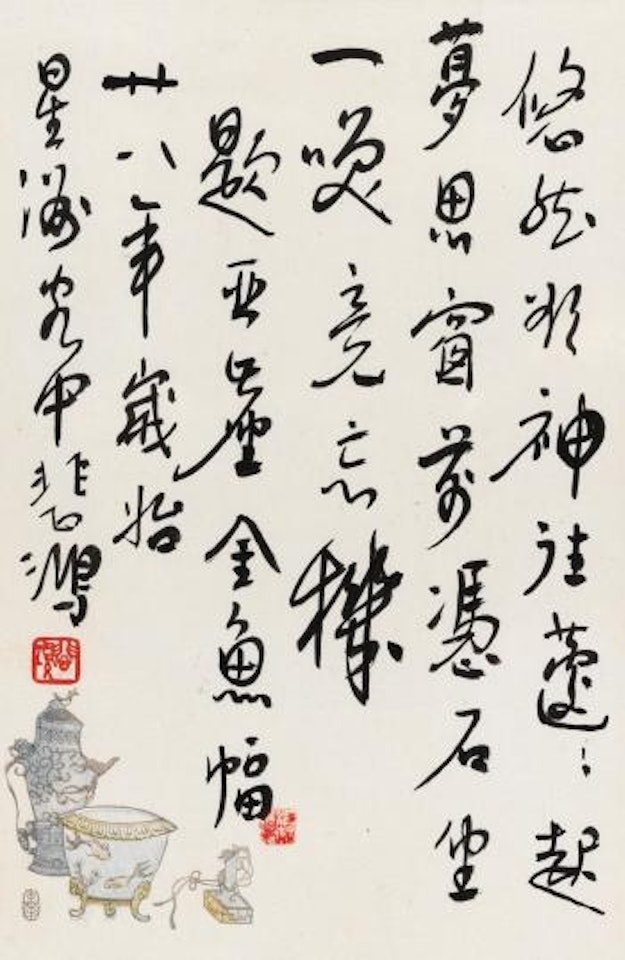 悠然欲神往蘧〻起
夢思窗前憑石坐
一竟忘機
題亞塵金魚幅
廿八年歲始
星洲客中悲鴻